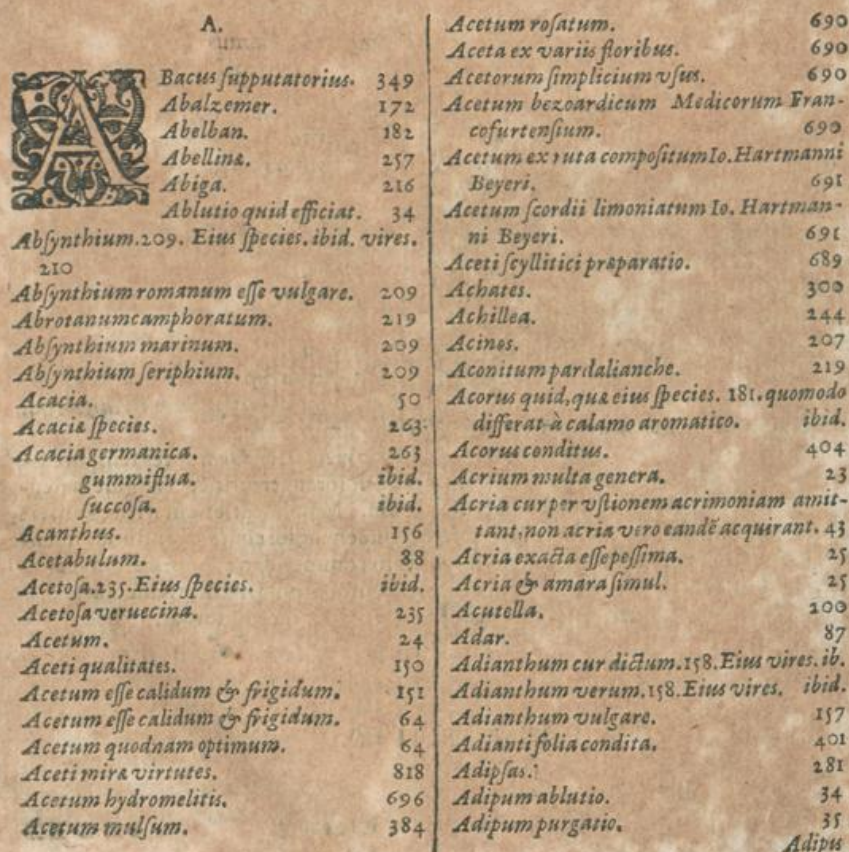 A.
ABacus ſupputatorius. 349
Abalzemer. 172
Abelban. 182
Abellinæ. 257
Abiga. 216
Ablutio quid efficiat. 34
Abſynthium.209. Eius ſpecies. ibid. vires.
210
Abſynthium romanum eſſe vulgare. 209
Abrotanum camphoratum. 219
Abſynthium marinum. 209
Abſynthium ſeriphium. 209
Acacia. 50
Acaciæ ſpecies. 263
Acacia germanica. 263
gummiflua. ibid.
ſuccoſa. ibid.
Acanthus. 156
Acetabulum. 88
Acetoſa.235. Eius ſpecies. ibid.
Acetoſa veruecina. 235
Acetum. 24
Aceti qualitates. 150
Acetum eſſe calidum & frigidum. 151
Acetum eſſe calidum & frigidum. 64
Acetum quodnam optimum. 64
Aceti miræ virtutes. 818
Acetum hydromelitis. 696
Acetum mulſum. 384
Acetum roſatum. 690
Aceta ex variis floribus. 690
Acetorum ſimplicium vſus. 690
Acetum bezoardicum Medicorum Fran-
cofurtenſium. 690
Acetum ex ruta compoſitum Io. Hartmanni
Beyeri. 691
Acetum ſcordii limoniatum Io. Hartman-
ni Beyeri. 691
Aceti ſcyllitici præparatio. 689
Achates. 300
Achillea. 244
Acinos. 207
Aconitum pardalianche. 219
Acorus quid, quæ eius ſpecies. 181. quomodo
differat à calamo aromatico. ibid.
Acorus conditus. 404
Acrium multa genera. 23
Acria cur per vſtionem acrimoniam amit-
tant, non acria vero eandē acquirant. 43
Acria exacta eſſe peſſima. 25
Acria & amara ſimul. 25
Acutella. 200
Adar. 87
Adianthum cur dictum.158. Eius vires. ib.
Adianthum verum.158. Eius vires. ibid.
Adianthum vulgare. 157
Adianti folia condita. 401
Adipſas. 281
Adipum ablutio. 34
Adipum purgatio. 35
Adipis